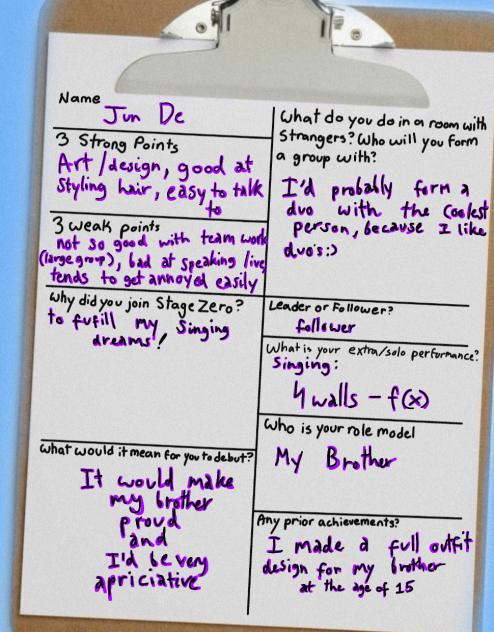 Name
Jun De
3 Strong Points
Art/design, good at
styling hair, easy to talk
to
3 weak points
not so good with team work
(large group), bad at speaking live,
tends to get annoyed easily
Why did you join Stage Zero?
to fufill my singing
dreams!
What would it mean for you to debut?
It would make
my brother
proud
and
I'd be very
apriciative
What do you do in a room with
Strangers? Who will you form
a group with?
I'd probably form a
duo with the coolest
person, because I like
duo's :)
Leader or Follower?
follower
What is your extra/solo performance?
Singing:
4 walls - f(x)
Who is your role model
My Brother
Any prior achievements?
I made a full outfit
design for my brother
at the age of 15